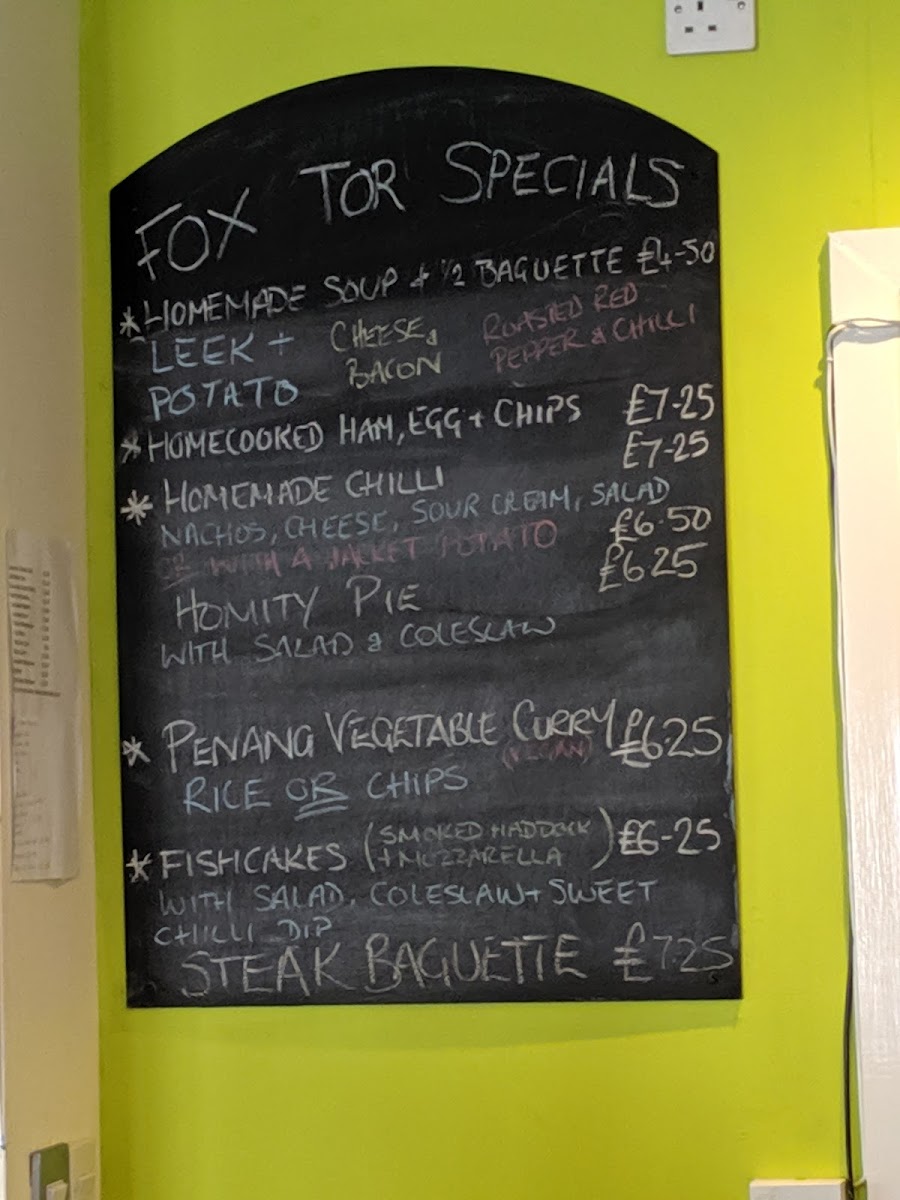 FOX TOR SPECIALS
* HOMEMADE SOUP + 1/2 BAGUETTE £4-50
LEEK + POTATO
CHEESE & BACON
ROASTED RED PEPPER & CHILLI
* HOMECOOKED HAM, EGG + CHIPS £7-25
* HOMEMADE CHILLI £7-25
NACHOS, CHEESE, SOUR CREAM, SALAD
OR WITH A JACKET POTATO £6-50
HOMITY PIE £6 25
WITH SALAD & COLESLAW
* PENANG VEGETABLE CURRY £625
(VEGAN)
RICE OR CHIPS
* FISHCAKES (SMOKED HADDOCK + MOZZARELLA) £6-25
WITH SALAD, COLESLAW + SWEET
CHILLI DIP
STEAK BAGUETTE £725